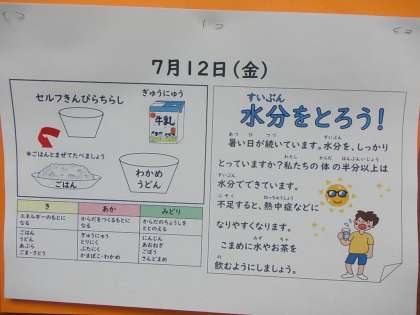 7月12日(金)
セルフきんぴらちらし
ぎゅうにゅう
牛乳
※ごはんとまぜてたべましょう
ごはん
わかめ
うどん
き
あか
みどり
エネルギーのもとに
なる
からだをつくるもとに
なる
からだのちょうしを
ととのえる
ごはん
うどん
あぶら
ごま・さとう
ぎゅうにゅう
とりにく
ぶたにく
かまぼこ・わかめ
にんじん
あおねぎ
ごぼう
さんどまめ
すいぶん
水分をとろう!
あつ ひ つづ すいぶん
暑い日が続いています。水分を、しっかり
わたし からだ はんぶんいじょう
とっていますか?私たちの体の半分以上は
すいぶん
水分でできています。
ふそく ねっちゅうしょう
不足すると、熱中症などに
なりやすくなります。
みず ちゃ
こまめに水やお茶を
の
飲むようにしましょう。